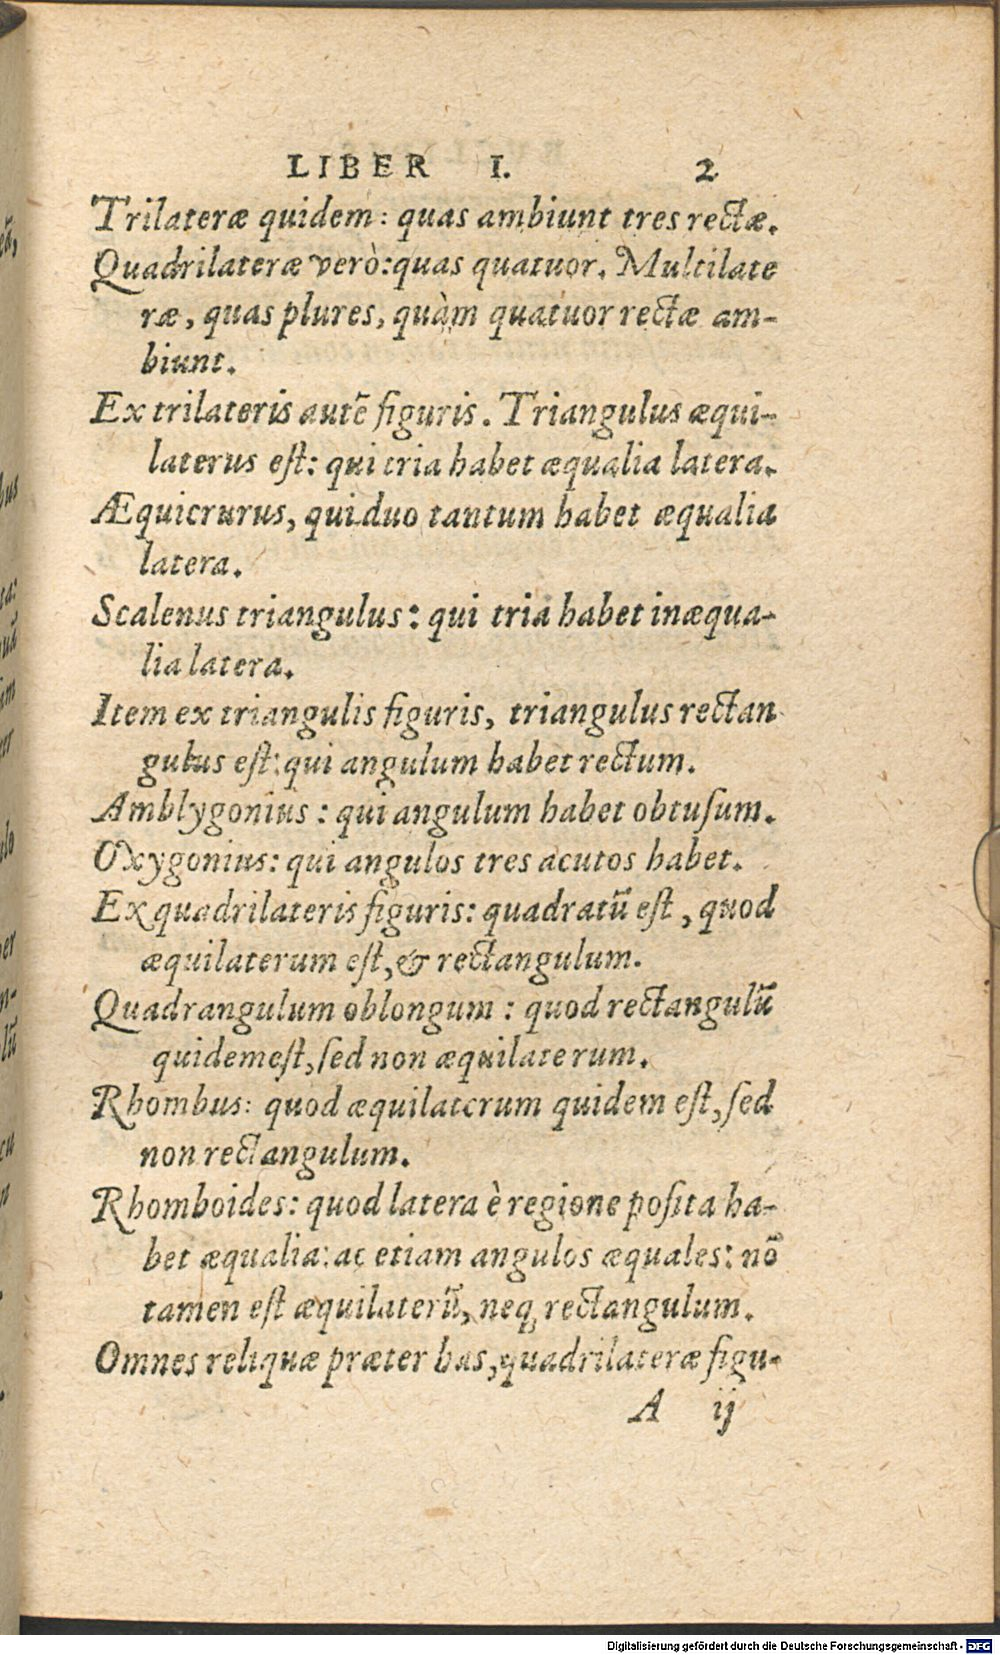 LIBER I. 2
Trilateræ quidem: quas ambiunt tres rectæ.
Quadrilateræ verò: quas quatuor. Multilate
ræ, quas plures, quàm quatuor rectæ am-
biunt.
Ex trilateris autē figuris. Triangulus æqui-
laterus eſt: qui tria habet æqualia latera.
Æquicrurus, qui duo tantum habet æqualia
latera.
Scalenus triangulus: qui tria habet inæqua-
lia latera.
Item ex triangulis figuris, triangulus rectan
gulus eſt: qui angulum habet rectum.
Amblygonius: qui angulum habet obtuſum.
Oxygonius: qui angulos tres acutos habet.
Ex quadrilateris figuris: quadratū eſt, quod
æquilaterum eſt, & rectangulum.
Quadrangulum oblongum: quod rectangulū
quidem eſt, ſed non æquilaterum.
Rhombus: quod æquilaterum quidem eſt, ſed
non rectangulum.
Rhomboides: quod latera è regione poſita ha-
bet æqualia: ac etiam angulos æquales: nō
tamen eſt æquilaterū, neqꝫ rectangulum.
Omnes reliquæ præter has, quadrilateræ figu-
A ij
Digitalisierung gefördert durch die Deutsche Forschungsgemeinschaft - DFG